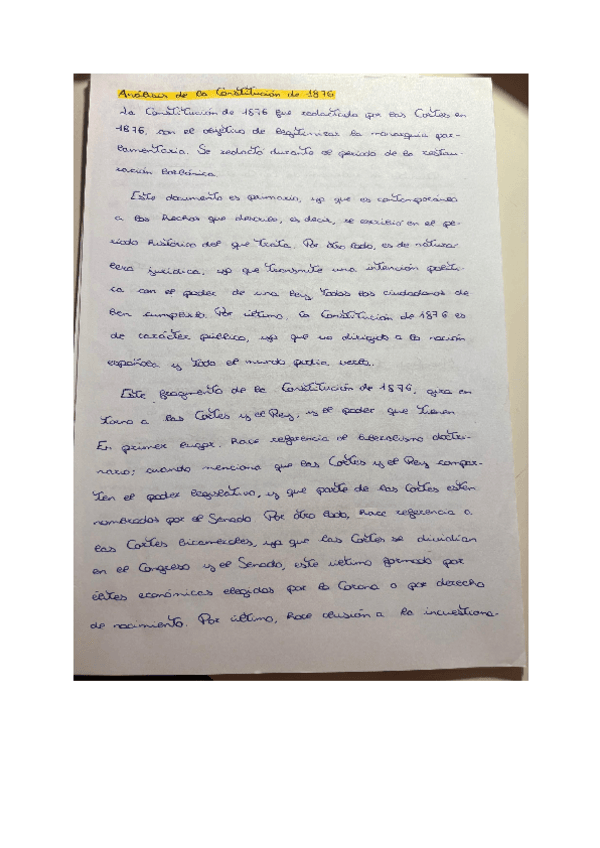 Análisis de la Constitución de 1876
La Constitución de 1876 fue redactada por las Cortes en
1876, con el objetivo de legitimizar la monarquía par-
lamentaria. Se redactó durante el periodo de la restau-
ración borbónica.
Este documento es primario, ya que es contemporáneo
a los hechos que describe, es decir, se escribió en el pe-
riodo histórico del que trata. Por otro lado, es de natura-
leza jurídica, ya que transmite una intención políti-
ca con el poder de una ley, todos los ciudadanos de
ben cumplirla. Por último, la Constitución de 1876 es
de carácter público, ya que va dirigida a la nación
española y todo el mundo podía verla.
Este fragmento de la Constitución de 1876, gira en
torno a las Cortes y el Rey, y el poder que tienen.
En primer lugar, hace referencia al liberalismo doctri-
nario; cuando menciona que las Cortes y el Rey compar-
ten el poder legislativo, y que parte de las Cortes estén
nombradas por el Senado. Por otro lado, hace referencia a
las Cortes bicamerales, ya que las Cortes se dividían
en el Congreso y el Senado, este último formado por
élites económicas elegidas por la Corona o por derecho
de nacimiento. Por último, hace alusión a la incuestiona-